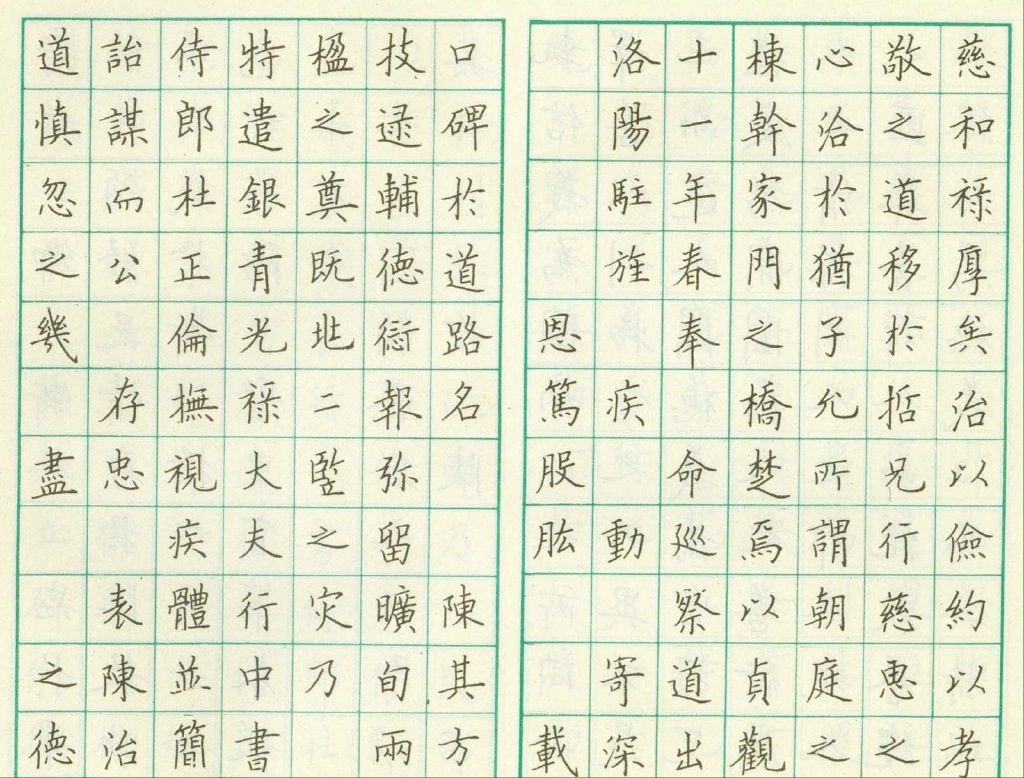 慈和祿厚矣治以儉約以孝
敬之道移於哲兄行慈惠之
心洽於猶子允所謂朝庭之
棟幹家門之橋楚焉以貞觀
十一年春奉 命巡察道出
洛陽駐旌 疾 動寄深
恩篤股肱 載
口碑於道路名 陳其方
技逯輔德衍報弥留曠旬兩
楹之奠既兆二竪之灾乃
特遣銀青光祿大夫行中書
侍郎杜正倫撫視疾體並簡
詒謀而公 存忠 表陳治
道慎忽之幾 盡 之德